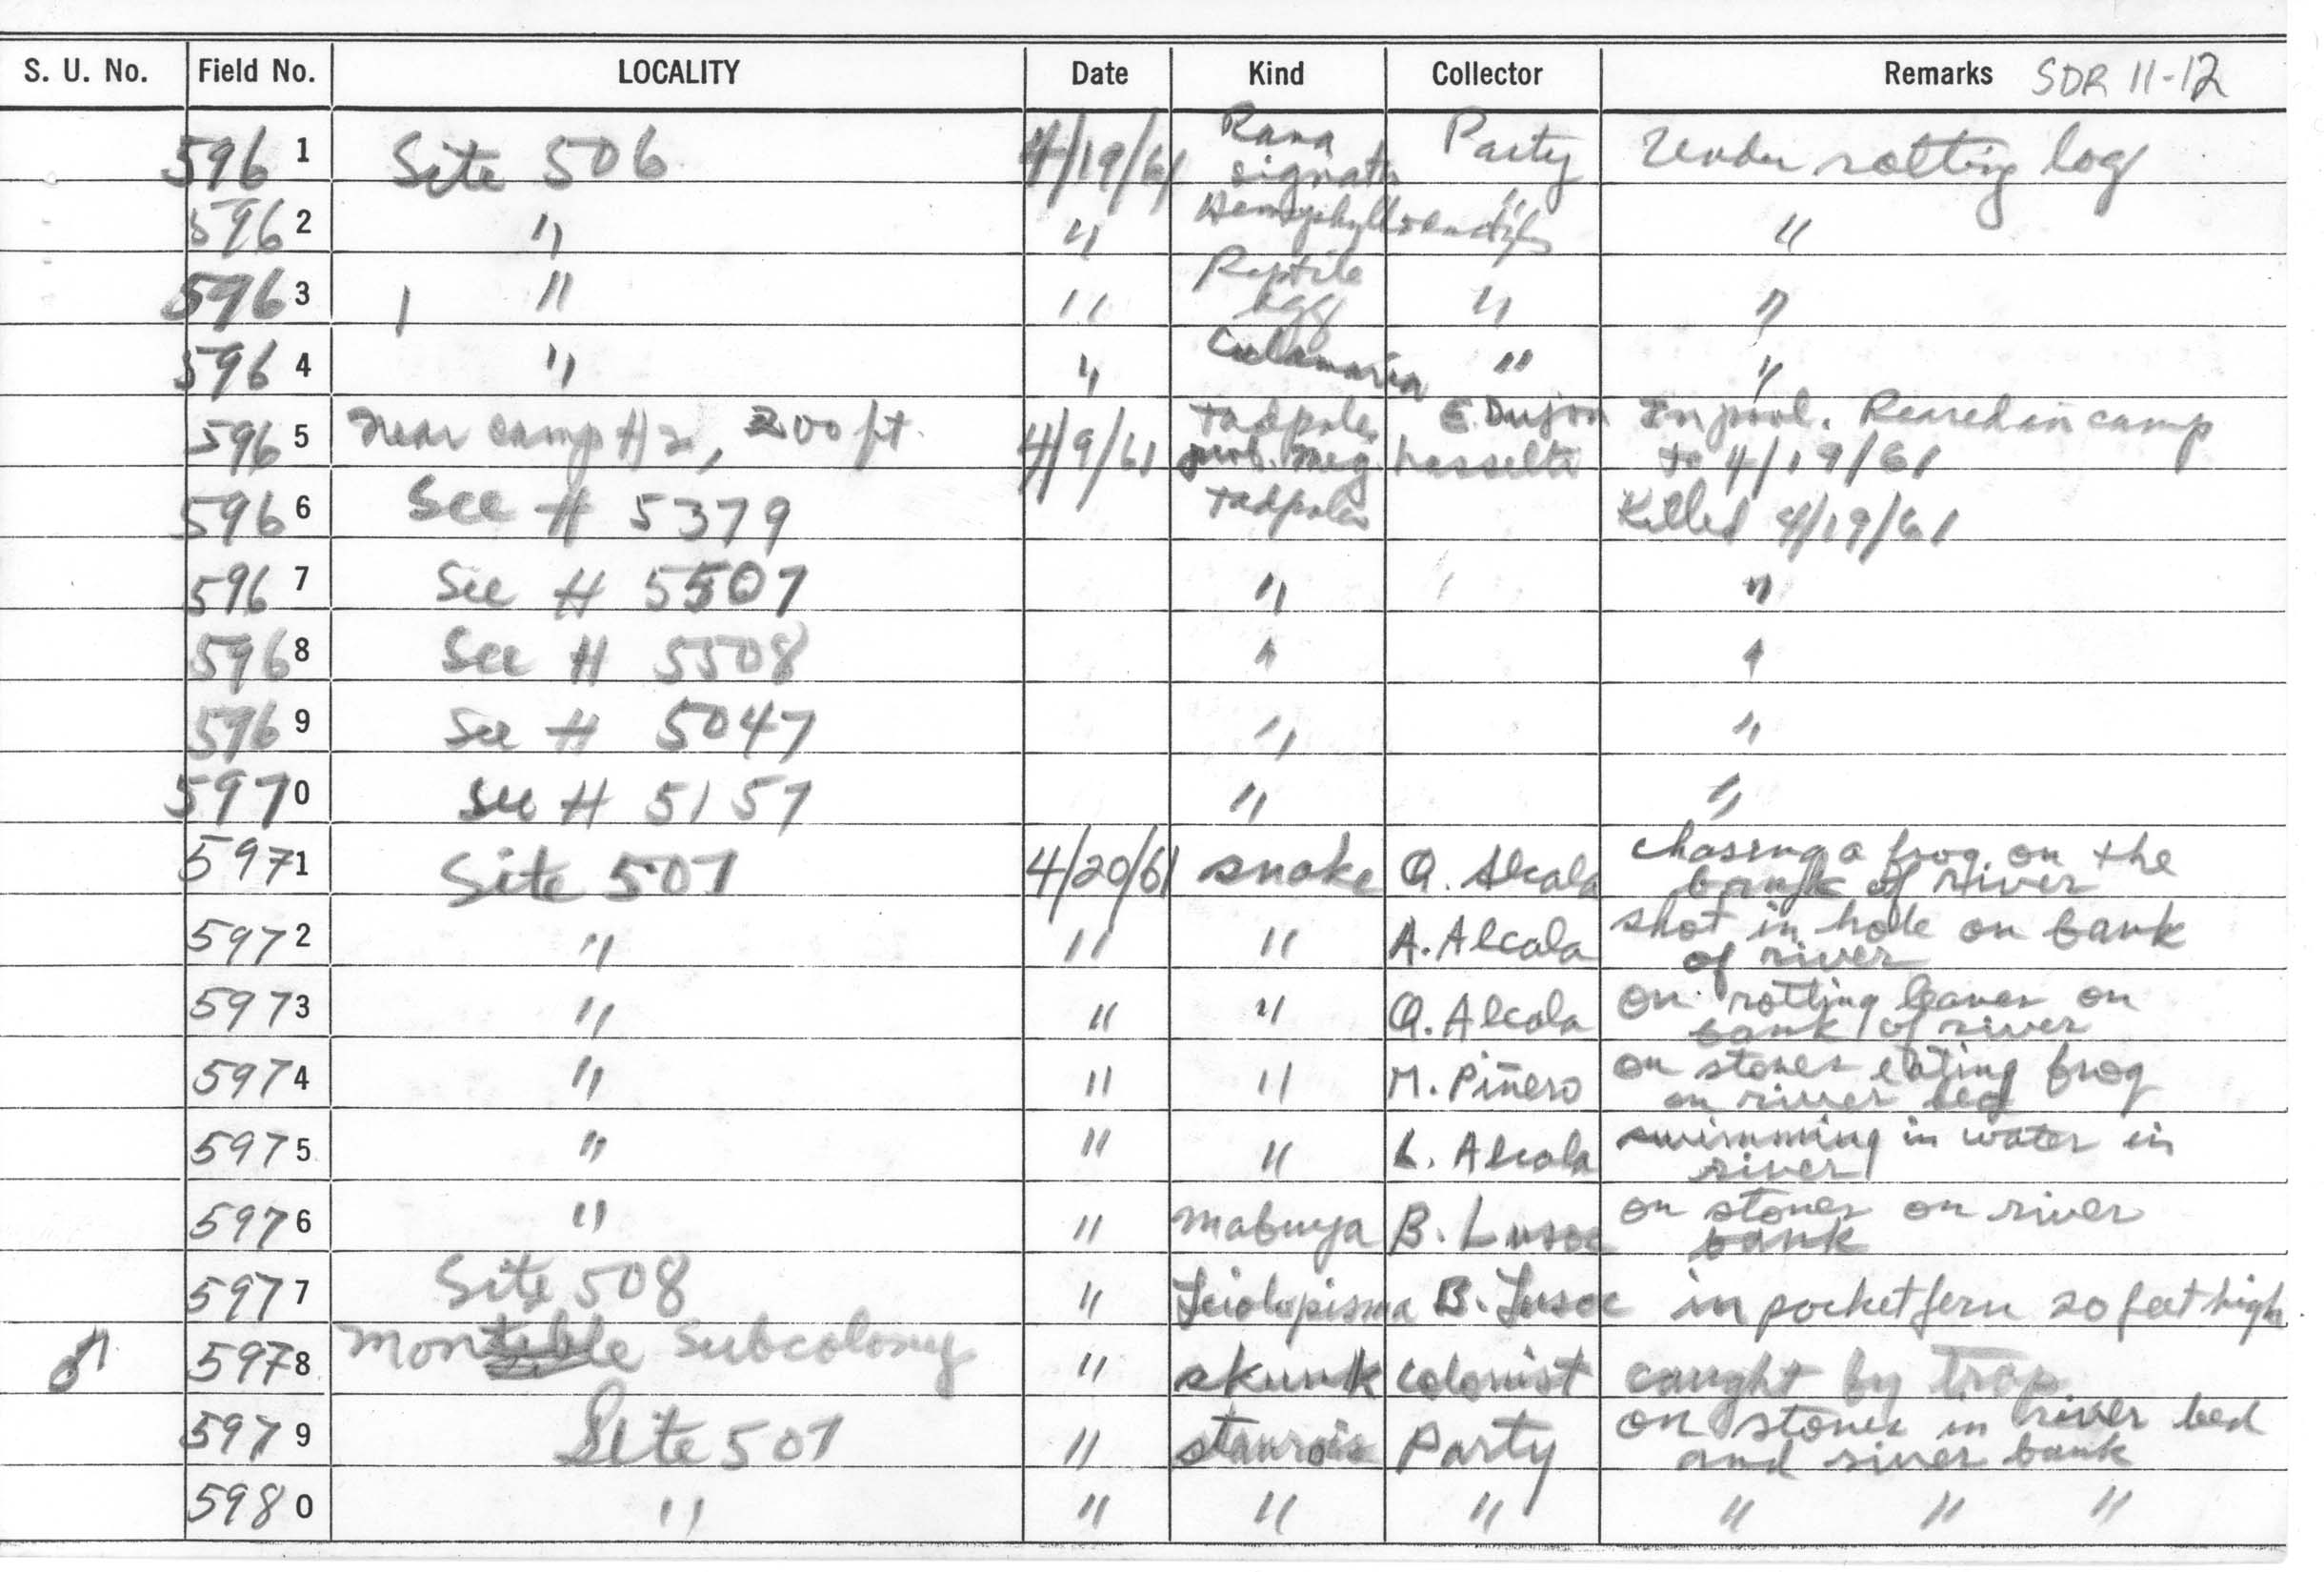 S. U. No. Field No. LOCALITY Date Kind Collector Remarks SDR 11-12
5961 Site 506 4/19/61 Rana signata Party Under rotting log
5962 " " "  "
5963 " " Reptile egg " "
5964 " " Calamaria " "
5965 Near camp #2, 200 ft. 4/9/61 tadpoles prob. Meg. hasselti E. Dujon In pool. Reared in camp to 4/19/61
5966 See # 5379 tadpoles Killed 4/19/61
5967 See # 5507 " "
5968 See # 5508 " "
5969 See # 5047 " "
5970 See # 5157 " "
5971 Site 507 4/20/61 snake Q. Alcala chasing a frog on the bank of river
5972 " " " A. Alcala shot in hole on bank of river
5973 " " " Q. Alcala on rotting leaves on bank of river
5974 " " " M. Piñero on stones eating frog on river bed
5975 " " " L. Alcala swimming in water in river
5976 " " mabuya B. Lusoc on stones on river bank
5977 Site 508 " Leiolopisma B. Lusoc in pocket fern 20 feet high
♂ 5978 Subcolony " skunk colonist caught by trap
5979 Site 507 " staurois Party on stones in river bed and river bank
5980 " " " " " " "